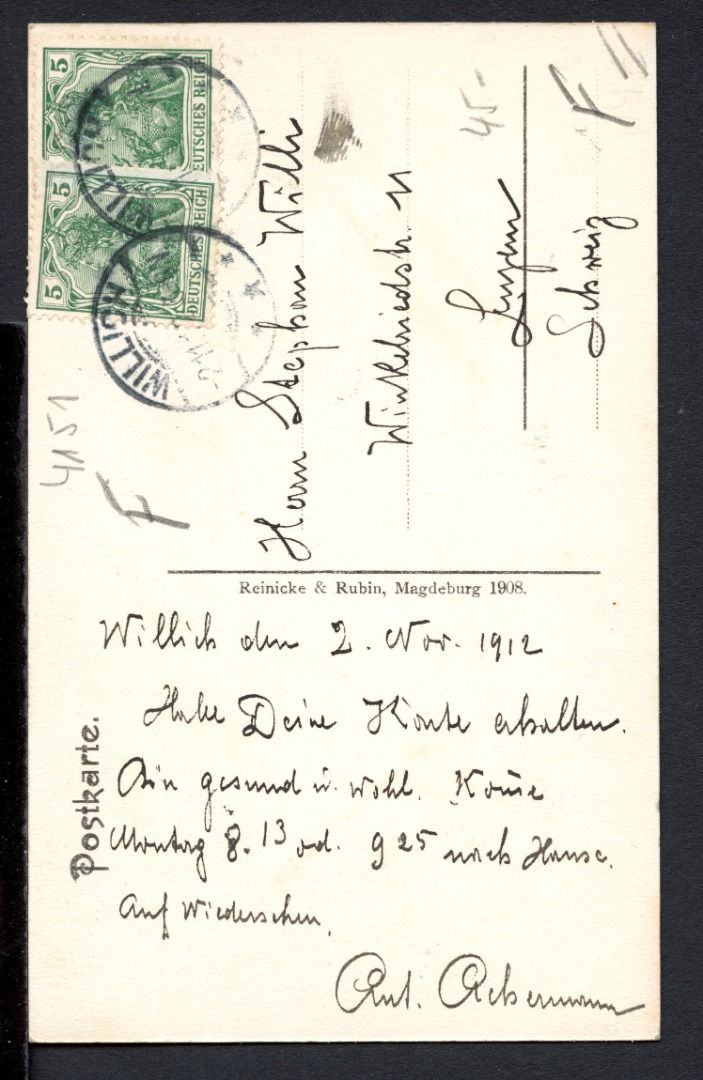 5
DEUTSCHES REICH
5
DEUTSCHES REICH
WILLICH
WILLICH
45-
F
4151
F
Herrn Stephan Willi
Winkelriedstr. 11
Luzern
Schweiz
Reinicke & Rubin, Magdeburg 1908.
Postkarte.
Willich den 2. Nov. 1912
Habe Deine Karte erhalten.
Bin gesund u. wohl. Kom̄e
Montag 8.13 od. 9 25 nach Hause.
Auf Wiedersehen.
Ant. Ackermann